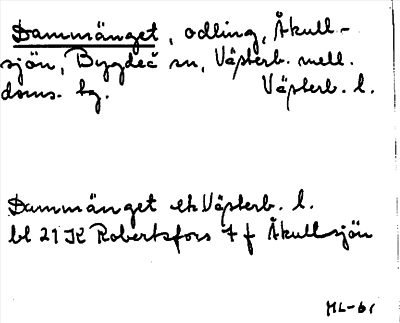 Dammänget, odling, Åkull-
sjön, Bygdeå sn, Västerb. mell.
doms. hg. Västerb. l.
Dammänget ek Västerb. l.
bl 21 K Robertsfors 7 f Åkullsjön
ML-61